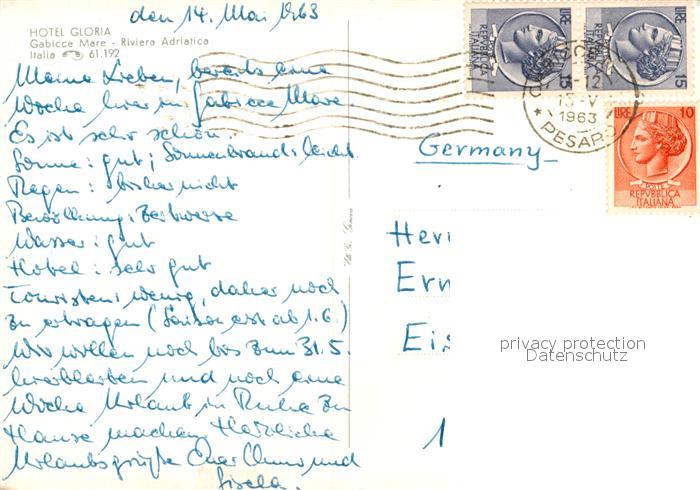 den 14. Mai 1963
HOTEL GLORIA
Gabicce Mare - Riviera Adriatica
Italia 61.192
Meine Lieben, bereits eine
Woche hier in Gabicce Mare.
Es ist sehr schön.
Sonne: gut; Sonnenbrand: leicht
Regen: bisher nicht
Bewölkung: Zeitweise
Wasser: gut
Hotel: sehr gut
Touristen: wenig, daher noch
zu ertragen (Saison erst ab 1.6.)
Wir wollen noch bis zum 31.5.
hierbleiben und noch eine
Woche Urlaub in Ruhe zu
Hause machen. Herzliche
Urlaubsgrüße Euer und
Gisela.
LIRE 15
REPUBBLICA ITALIANA
LIRE 15
REPUBBLICA ITALIANA
LIRE 10
POSTE
REPVBBLICA
ITALIANA
13-V
1963
* PESARO
Germany
Her
Ern
Eis
1
privacy protection
Datenschutz